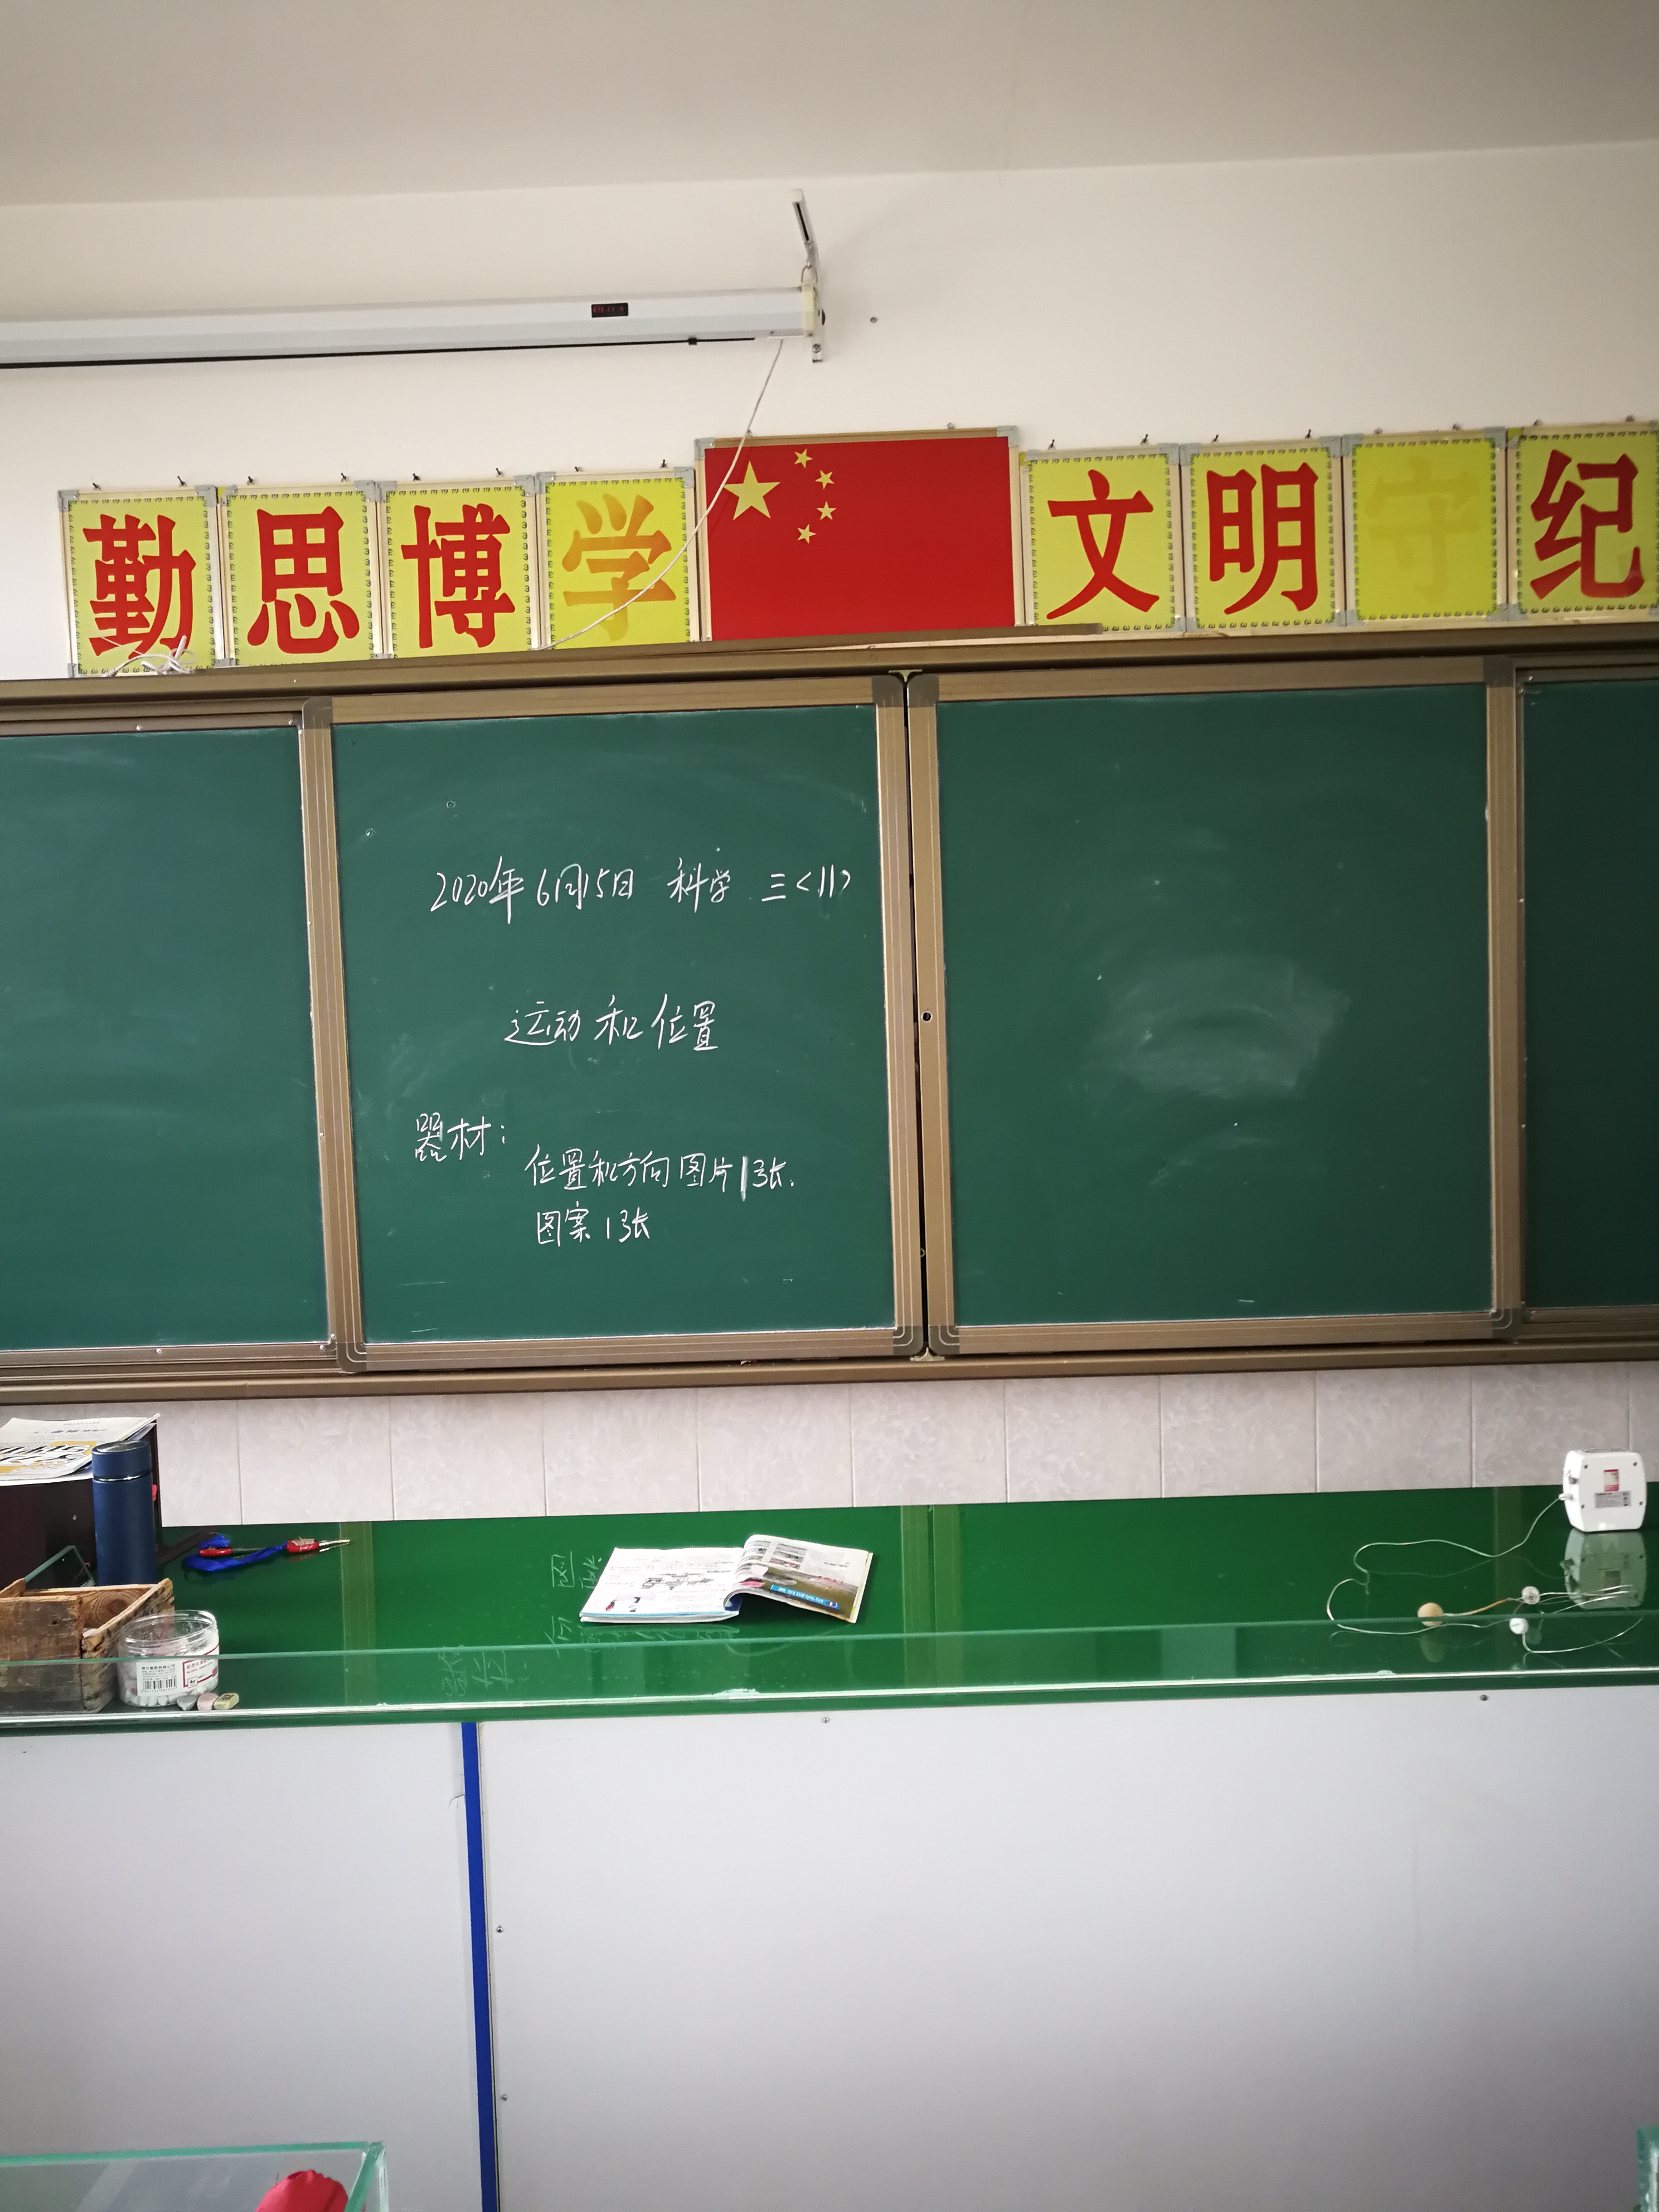 勤思博学 文明守纪
2020年6月15日 科学 三<11>
运动和位置
器材:
位置和方向图片1张.
图案1张